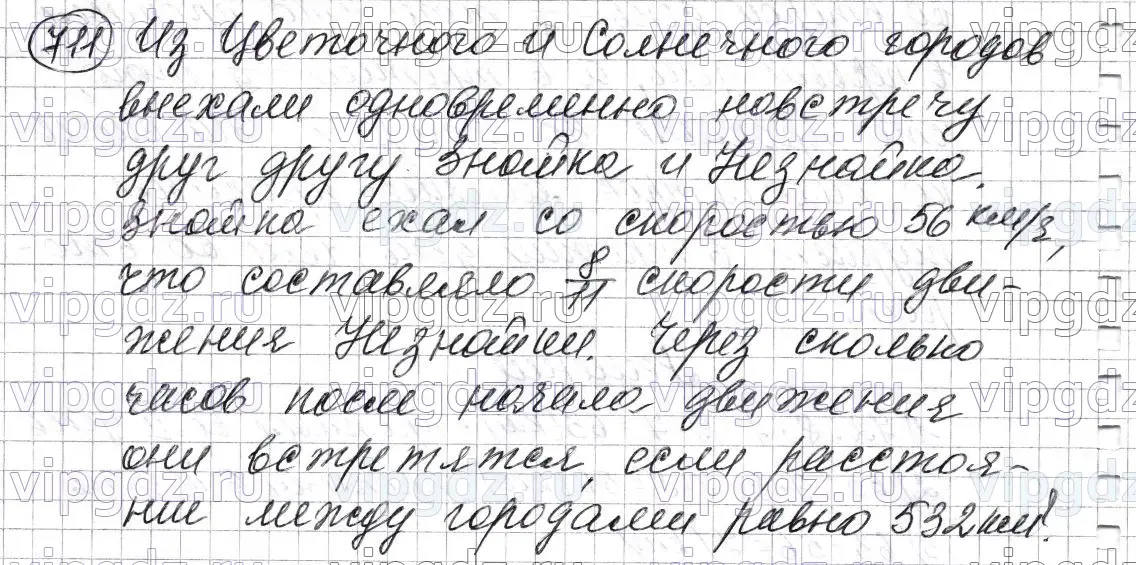 711 Из Цветочного и Солнечного городов
выехали одновременно навстречу
друг другу Знайка и Незнайка.
Знайка ехал со скоростью 56 км/ч,
что составляло 8/11 скорости дви-
жения Незнайки. Через сколько
часов после начала движения
они встретятся, если расстоя-
ние между городами равно 532 км?